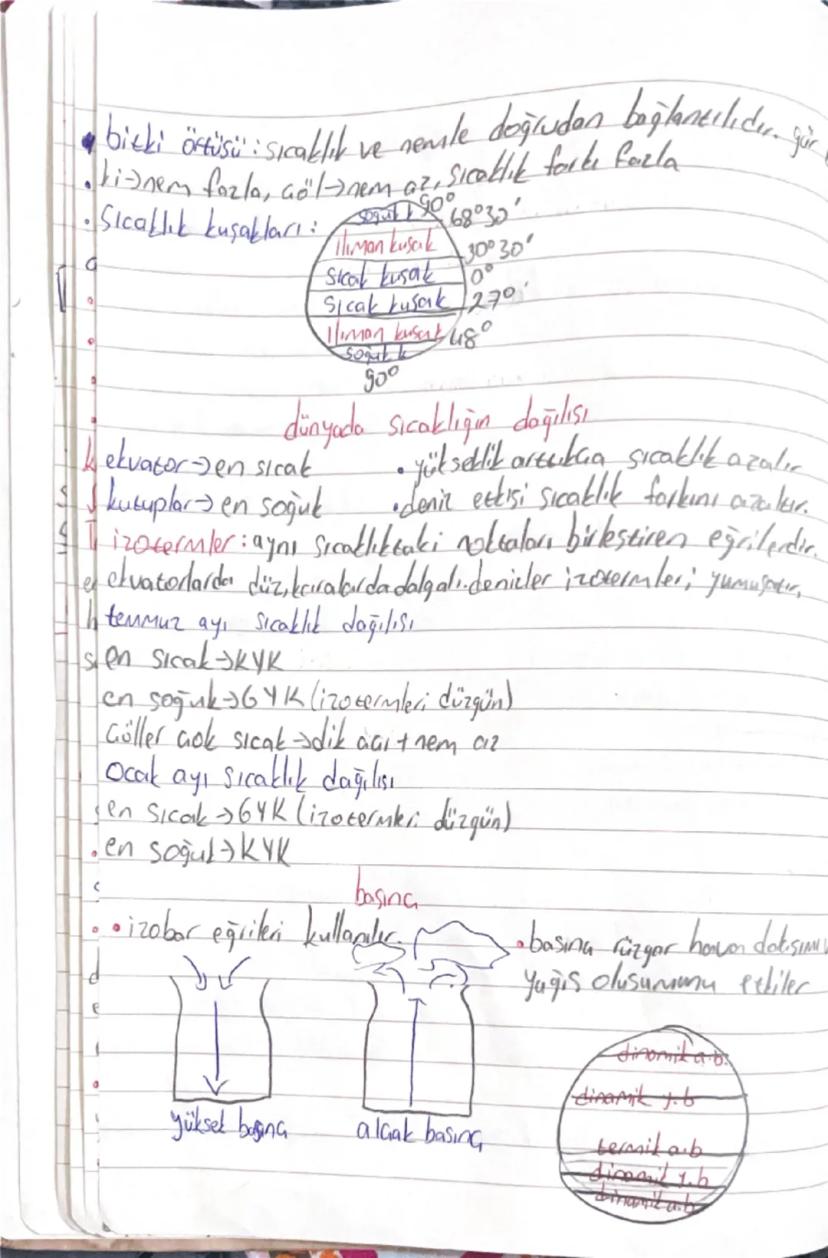 • bitki örtüsü: sıcaklık ve nemle doğrudan bağlantılıdır. gür
• ki→nem fazla, çöl→nem az, sıcaklık farkı fazla
• sıcaklık kuşakları:
soğuk k 90°
68°30'
ılıman kuşak 30°30'
sıcak kuşak 0°
sıcak kuşak 27°
ılıman kuşak 48°
soğuk k
90°
dünyada sıcaklığın dağılışı
ekvator→en sıcak
• yükseklik arttıkça sıcaklık azalır
kutuplar→en soğuk
• deniz etkisi sıcaklık farkını azaltır.
izotermler: aynı sıcaklıktaki noktaları birleştiren eğrilerdir.
ekvatorlarda düz, karalarda dalgalı. denizler izotermleri yumuşatır.
temmuz ayı sıcaklık dağılışı
en sıcak→KYK
en soğuk→GYK (izotermleri düzgün)
Çöller çok sıcak→dik açı+nem az
Ocak ayı sıcaklık dağılışı
en sıcak→GYK (izotermleri düzgün)
• en soğuk→KYK
basınç
• izobar eğrileri kullanılır.
• basınç rüzgar hava
yağış oluşumunu etkiler
yüksek basınç
alçak basınç
dinamik a.b.
dinamik y.b
termik a.b
dinamik y.b
dinamik a.b